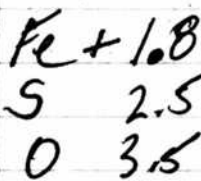 Fe + 1.8
S 2.5
O 3.5